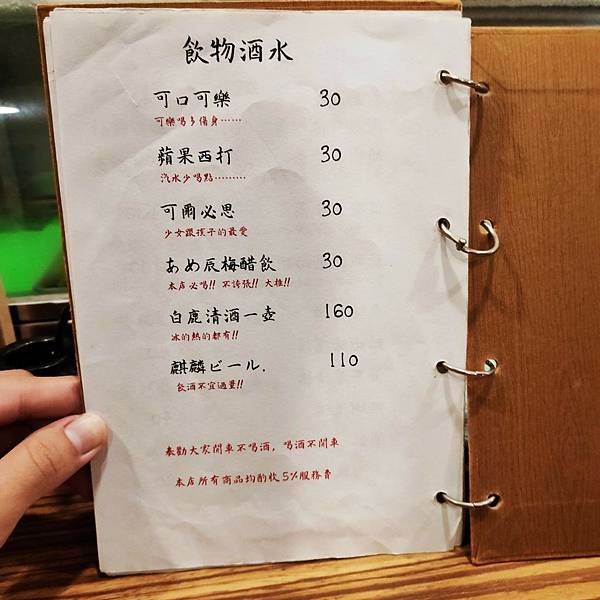 飲物酒水
可口可樂 30
可樂喝多傷身……
蘋果西打 30
汽水少喝點………
可爾必思 30
少女跟孩子的最愛
あめ辰梅醋飲 30
本店必喝!! 不誇張!! 大推!!
白鹿清酒一壺 160
冰的熱的都有!!
麒麟ビール. 110
飲酒不宜過量!!
奉勸大家開車不喝酒, 喝酒不開車
本店所有商品均酌收5%服務費